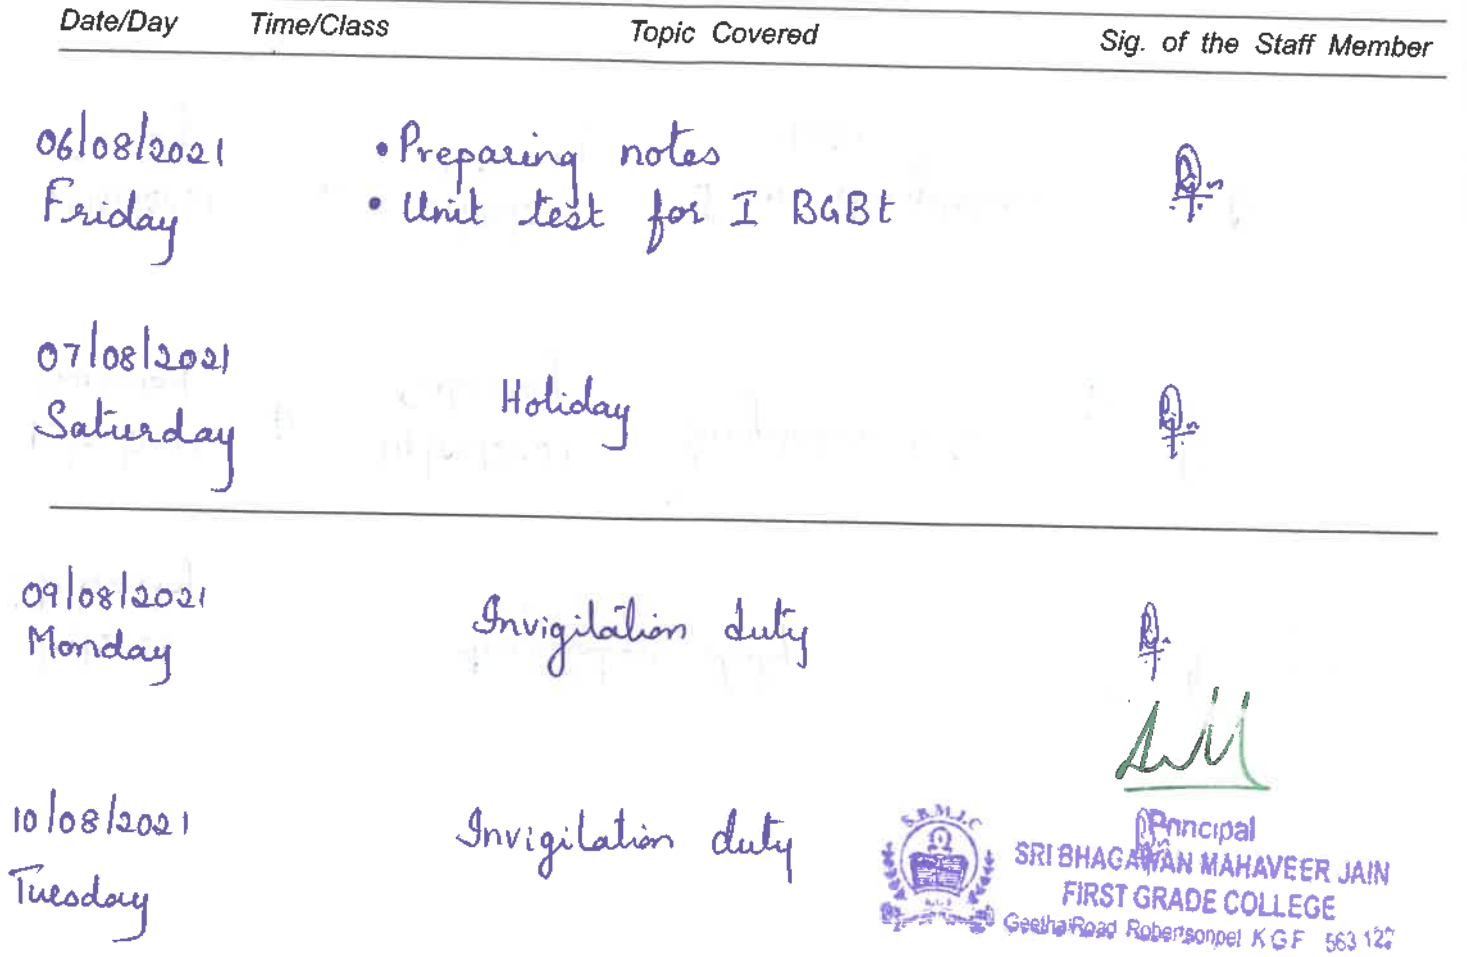 Date/Day Time/Class Topic Covered Sig. of the Staff Member
06/08/2021 • Preparing notes
Friday • Unit test for I BGBt
07/08/2021
Saturday Holiday
09/08/2021 Invigilation duty
Monday
10/08/2021 Invigilation duty
Tuesday
S.B.M.J.C
K.G.F
Principal
SRI BHAGAWAN MAHAVEER JAIN
FIRST GRADE COLLEGE
Geetha Road Robertsonpet K G F 563 122